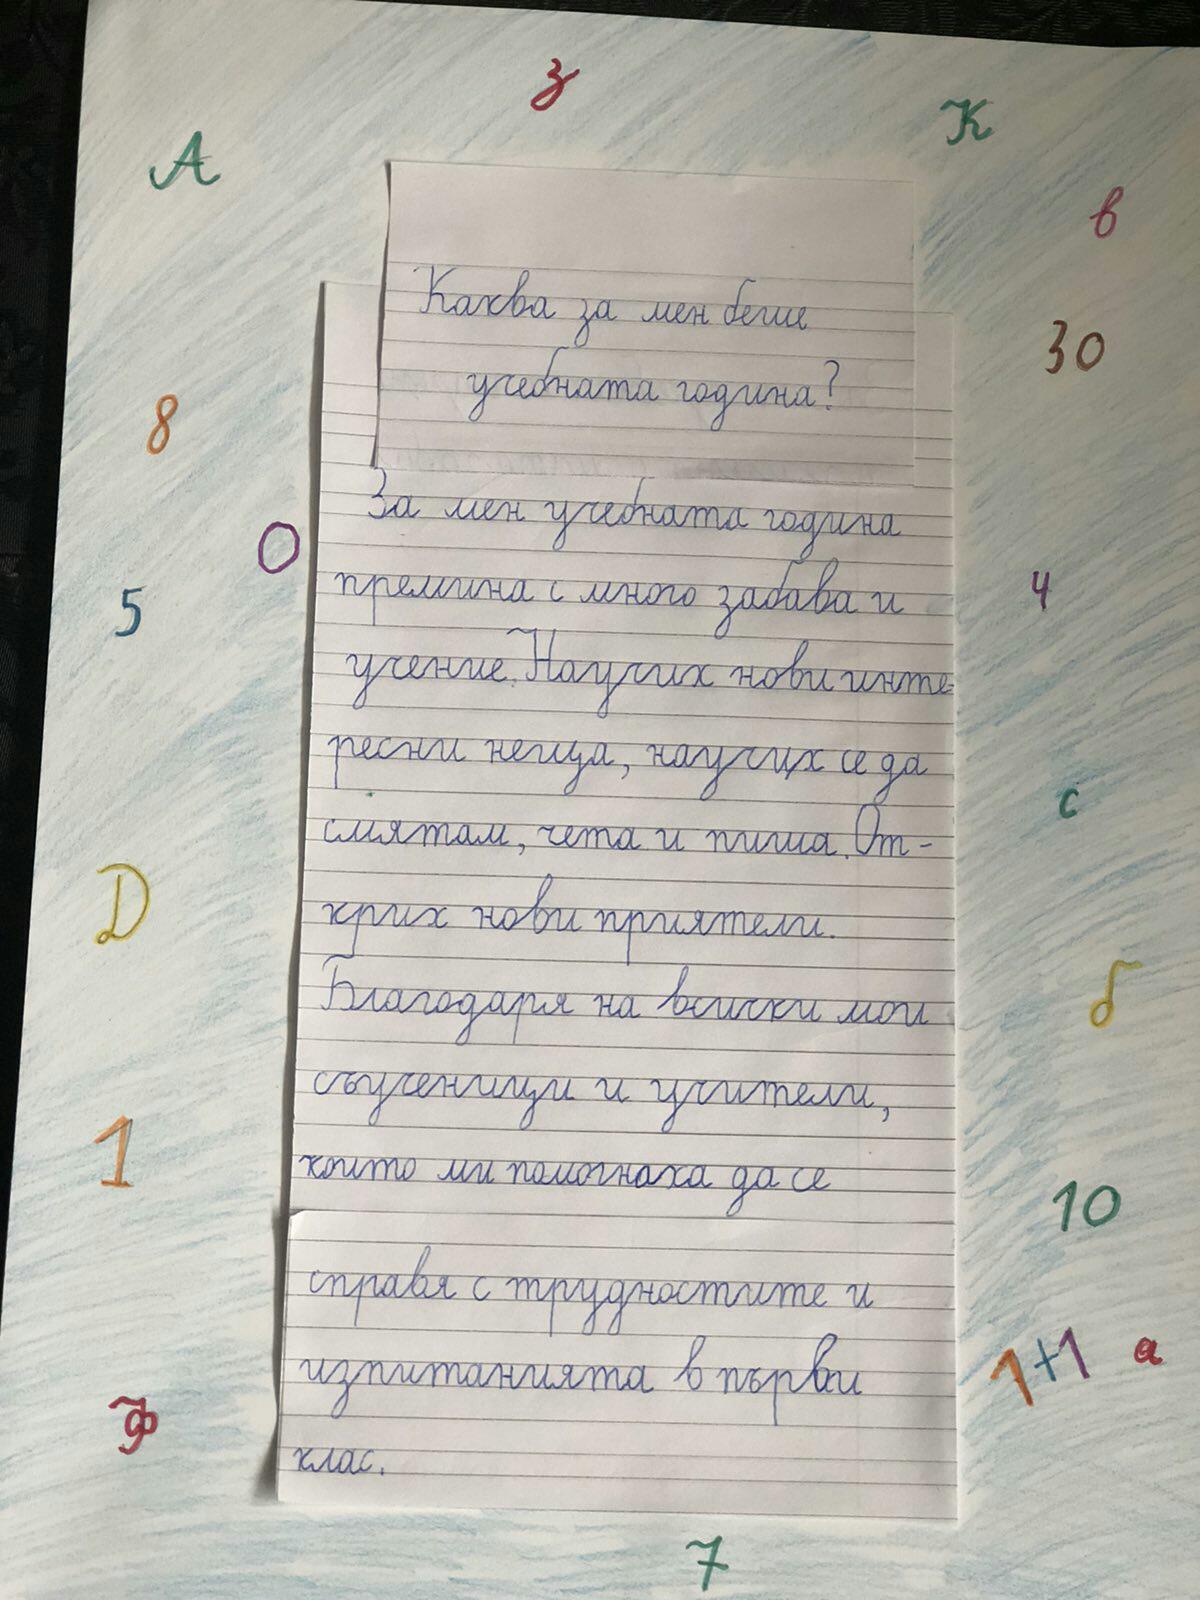 з
К
А
в
Каква за мен беше
30
учебната година?
8
За мен учебната година
О
премина с много забава и
5
4
учение. Научих нови инте-
ресни неща, научих се да
с
смятам, чета и пиша. От-
Д
крих нови приятели.
б
Благодаря на всички мои
съученици и учители,
1
които ми помогнаха да се
10
справя с трудностите и
1+1 а
изпитанията в първи
Ф
клас.
7